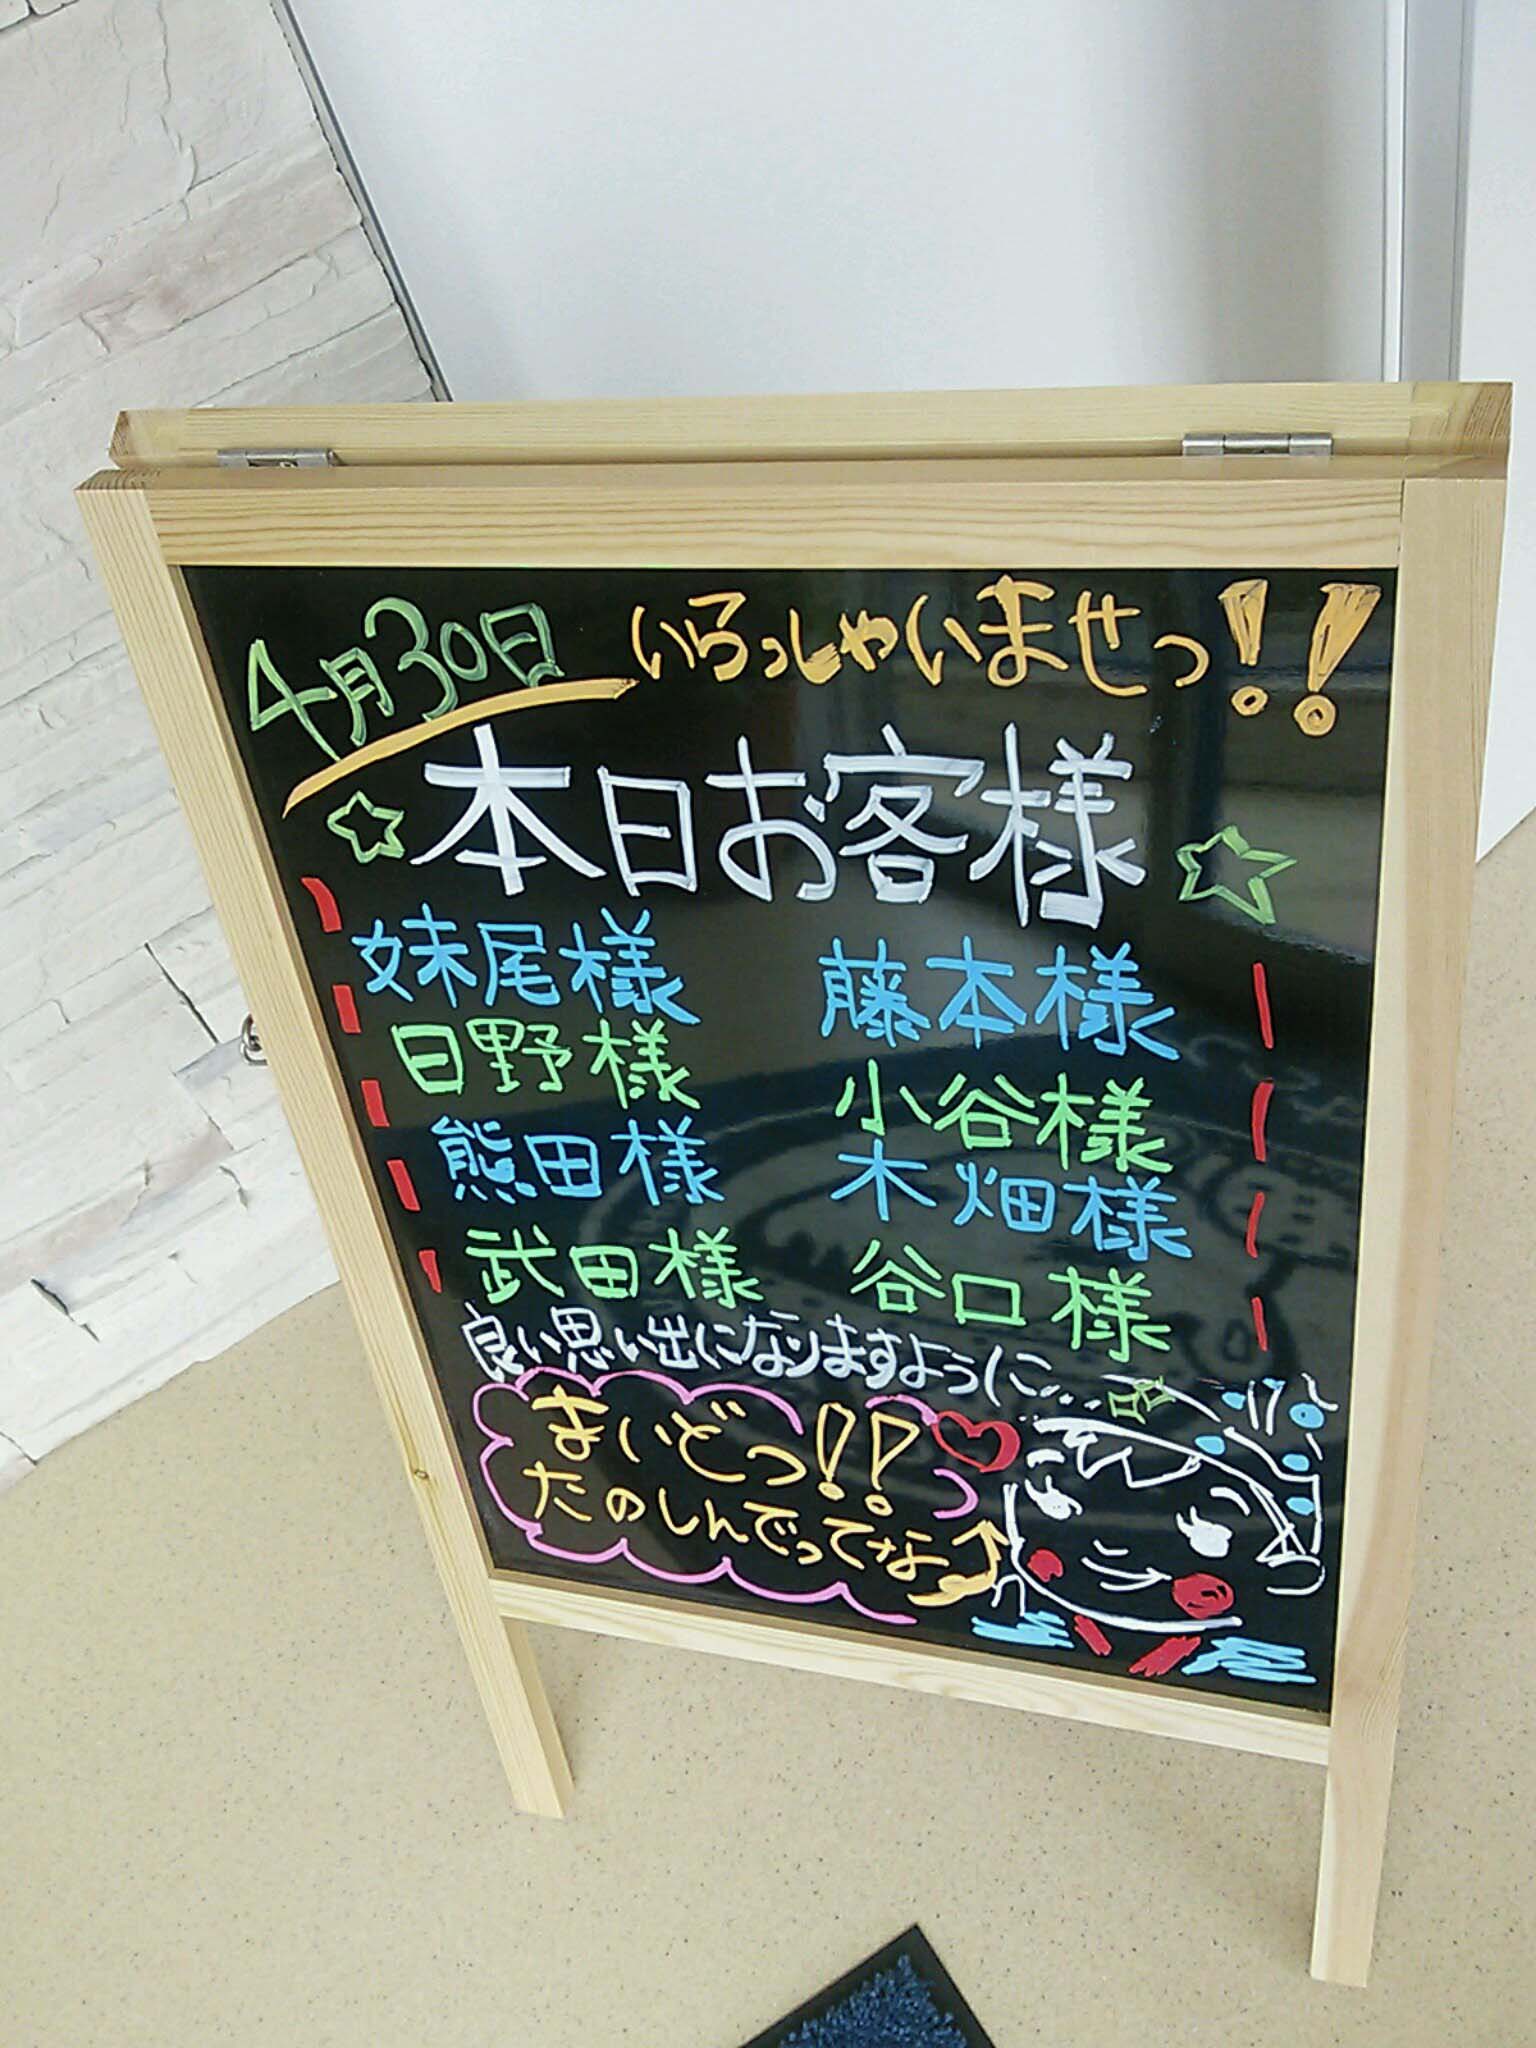 4月30日 いらっしゃいませっ!!
本日お客様
妹尾様 藤本様
日野様 小谷様
熊田様 木畑様
武田様 谷口様
良い思い出になりますように…
まいどっ!!
たのしんでってな